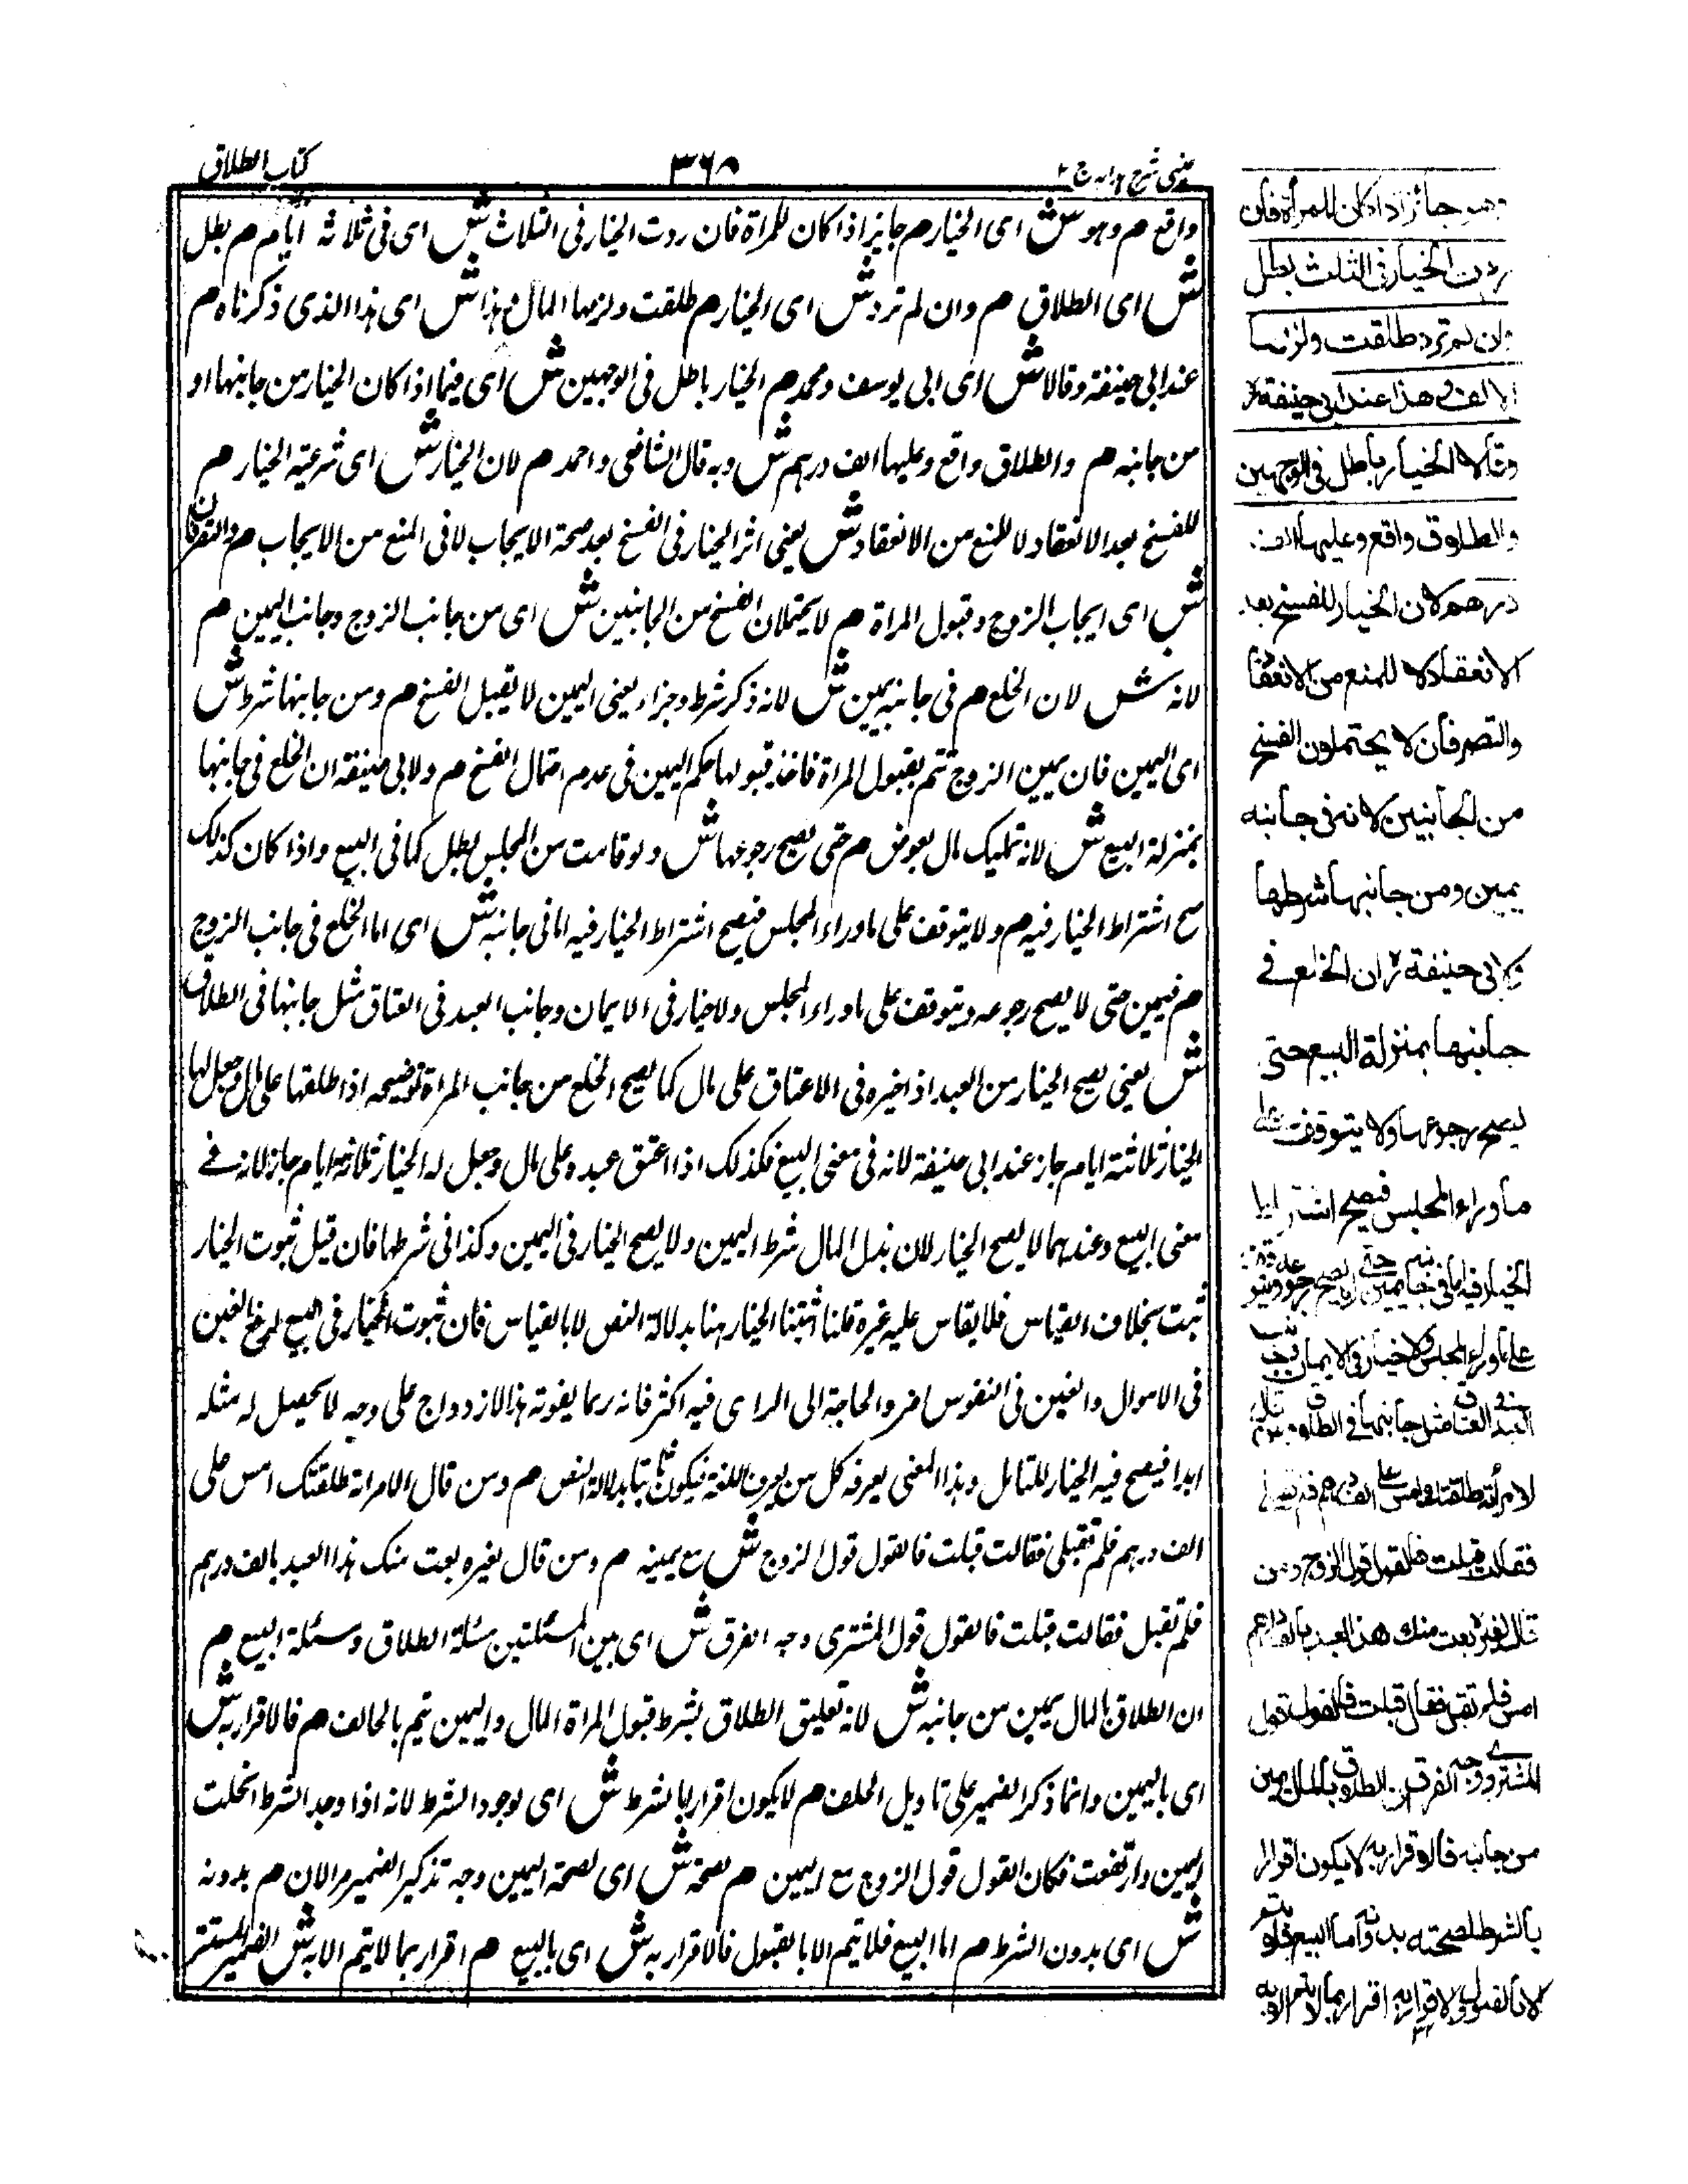 عینی شرح ہدایہ ج ٢
٣٦٨
کتاب الطلاق
واقع م وهو ش ای الخیار م جایز اذا کان للمراة فان ردت الخیار فی الثلاث ش ای فی ثلاثة ایام م بطل
ش ای الطلاق م وان لم ترد ش ای الخیار م طلقت ولزمها المال م هذا ش ای هذا الذی ذکرناه م
عند ابی حنیفة وقالا ش ای ابی یوسف ومحمد م الخیار باطل فی الوجهین ش ای فیما اذا کان الخیار من جانبها او
من جانبه م والطلاق واقع وعلیها الف درهم ش وبه قال الشافعی واحمد م لان الخیار ش ای شرعیة الخیار م
للفسخ بعد الانعقاد لا للمنع من الانعقاد ش یعنی اثر الخیار فی الفسخ بعد صحة الایجاب لا فی المنع من الایجاب م والتصرفان
ش ای ایجاب الزوج وقبول المراة م لا یحتملان الفسخ من الجانبین ش ای من جانب الزوج وجانب الیمین م
لانه ش لان الخلع م فی جانبه یمین ش لانه ذکر شرط وجزاء یعنی الیمین لا یقبل الفسخ م ومن جانبها شرط ش
ای الیمین فان یمین الزوج تتم بقبول المراة فاخذ قبولها حکم الیمین فی عدم احتمال الفسخ م ولابی حنیفة ان الخلع فی جانبها
بمنزلة البیع ش لانه تملیک مال بعوض م حتی یصح رجوعها ش ولو قامت من المجلس بطل کما فی البیع واذا کان کذلک
صح اشتراط الخیار فیه م ولا یتوقف علی ما وراء المجلس فیصح اشتراط الخیار فیه اما فی جانبه ش ای اما الخلع فی جانب الزوج
م فیمین حتی لا یصح رجوعه ویتوقف علی ما وراء المجلس ولا خیار فی الایمان وجانب العبد فی العتاق مثل جانبها فی الطلاق
ش یعنی یصح الخیار من العبد اذا خیره فی الاعتاق علی مال کما یصح الخلع من جانب المراة توضیحه اذا طلقها علی مال وجعل لها
الخیار ثلاثة ایام جاز عند ابی حنیفة لانه فی معنی البیع فکذلک اذا اعتق عبده علی مال وجعل له الخیار ثلاثة ایام جاز لانه فی
معنی البیع وعندهما لا یصح الخیار لان بدل المال شرط الیمین ولا یصح الخیار فی الیمین وکذا فی شرطها فان قیل ثبوت الخیار
ثبت بخلاف القیاس فلا یقاس علیه غیره قلنا اثبتنا الخیار هنا بدلالة النص لا بالقیاس فان ثبوت الخیار فی البیع لدفع الغبن
فی الاموال والغبن فی النفوس اضر والحاجة الی الرای فیه اکثر فانه ربما یفوته هذا الازدواج علی وجه لا یحصل له مثله
ابدا فیصح فیه الخیار للتامل وهذا المعنی یعرفه کل من یعرف اللغة فیکون ثابتا بدلالة النص م ومن قال لامراته طلقتک امس علی
الف درهم فلم تقبلی فقالت قبلت فالقول قول الزوج ش مع یمینه م ومن قال لغیره بعت منک هذا العبد بالف درهم
فلم تقبل فقالت قبلت فالقول قول المشتری وجه الفرق ش ای بین المسئلتین مسئلة الطلاق ومسئلة البیع م
ان الطلاق بالمال یمین من جانبه ش لانه تعلیق الطلاق بشرط قبول المراة المال والیمین یتم بالحالف م فالاقرار به ش
ای بالیمین وانما ذکر الضمیر علی تاویل الحلف م لا یکون اقرارا بالشرط ش ای بوجود الشرط لانه اذا وجد الشرط انحلت
الیمین وارتفعت فکان القول قول الزوج مع الیمین م لصحته ش ای لصحة الیمین وجه تذکیر الضمیر مر الان م بدونه
ش ای بدون الشرط م اما البیع فلا یتم الا بالقبول فالاقرار به ش ای بالبیع م اقرار بما لا یتم الا به ش الضمیر المستتر
وهو جائز اذا كان للمرأة فأن
ردت الخيار فى الثلث بطل
وان لم ترد طلقت ولزمها
الالف وهذا عند ابى حنيفة
وقالا الخيار باطل فى الوجهين
والطلاق واقع وعليها الف
درهم لان الخيار للفسخ بعد
الانعقاد لا للمنع من الانعقاد
والتصرفان لا يحتملان الفسخ
من الجانبين لانه فى جانبه
يمين ومن جانبها شرطها
ولابى حنيفة ان الخلع فى
جانبها بمنزلة البيع حتى
يصح رجوعها ولا يتوقف على
ما وراء المجلس فيصح اشتراط
الخيار فيه اما فى جانبه يمين حتى لا يصح رجوعه ويتوقف
على ما وراء المجلس ولا خيار فى الايمان وجانب
العبد فى العتاق مثل جانبها فى الطلاق ومن قال
لامرأته طلقتك امس على الف درهم فلم تقبلى
فقالت قبلت فالقول قول الزوج ومن
قال لغيره بعت منك هذا العبد بالف درهم
امس فلم تقبل فقال قبلت فالقول قول
المشترى وجه الفرق ان الطلاق بالمال يمين
من جانبه فالاقرار به لا يكون اقرارا
بالشرط لصحته بدونه واما البيع فلا يتم
الا بالقبول والاقرار به اقرار بما لا يتم الا به